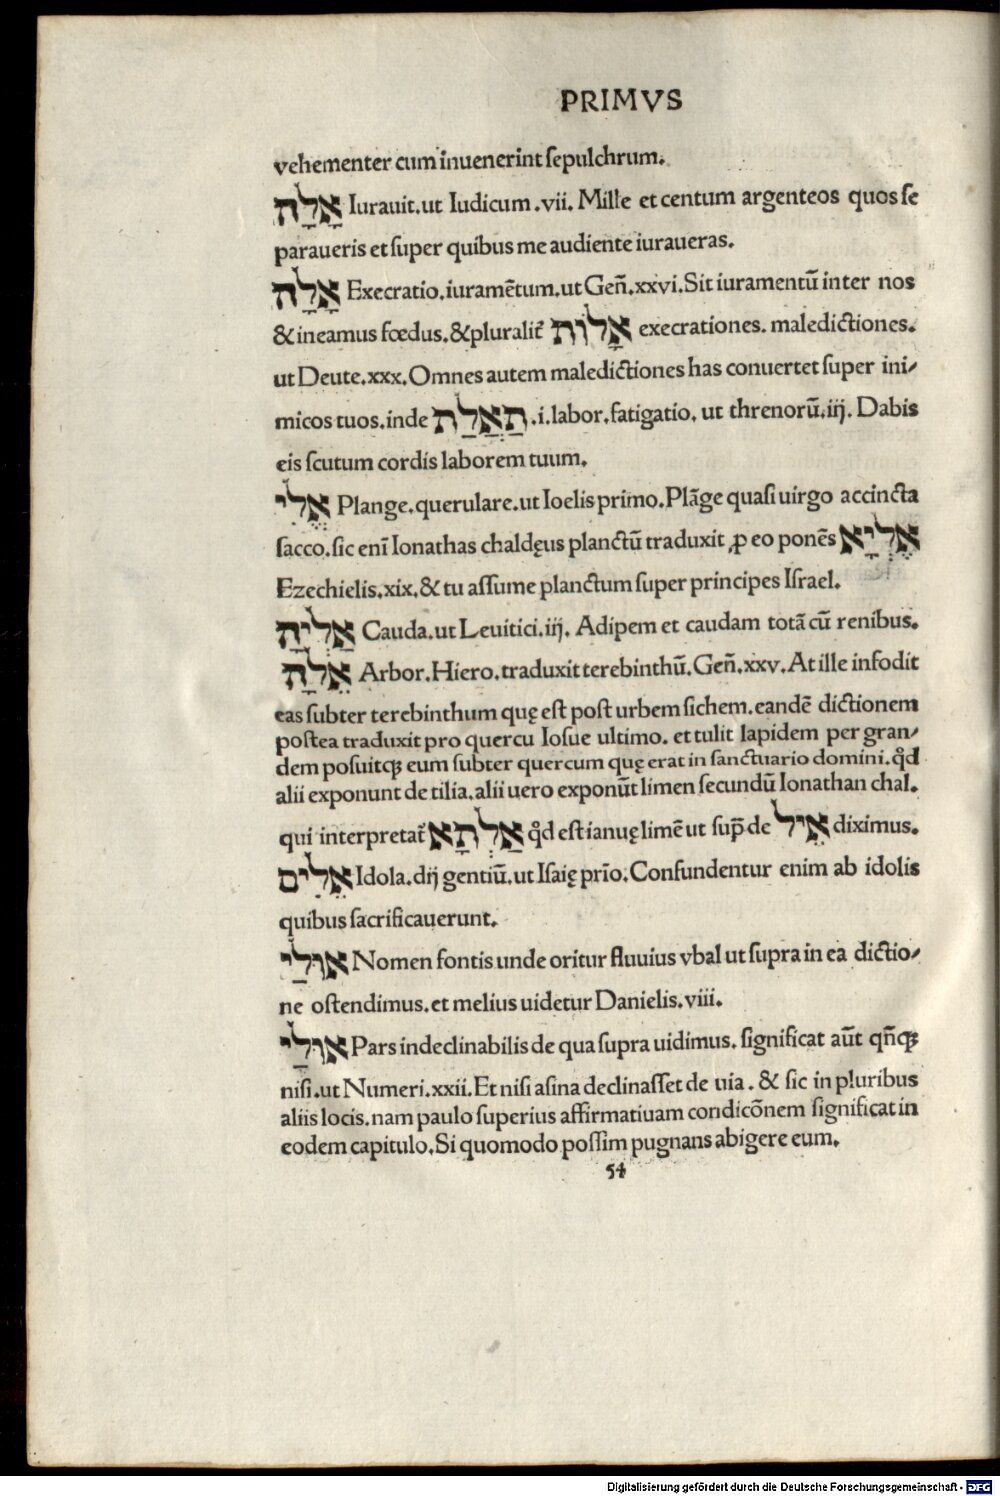 PRIMVS
vehementer cum inuenerint ſepulchrum.
אָלָה Iurauit.ut Iudicum.vii. Mille et centum argenteos quos ſe
paraueris et ſuper quibus me audiente iuraueras.
אָלָה Execratio.iuramētum.ut Geñ.xxvi.Sit iuramentū inter nos
&ineamus fœdus.&pluralit̃ אָלוֹת execrationes. maledictiones.
ut Deute.xxx.Omnes autem maledictiones has conuertet ſuper ini⸗
micos tuos.inde תַאֲלַת .i.labor.fatigatio. ut threnorū.iij. Dabis
eis ſcutum cordis laborem tuum.
אֱלִי Plange.querulare.ut Ioelis primo.Plāge quaſi uirgo accincta
ſacco.ſic enī Ionathas chaldęus planctū traduxit ꝓ eo ponēs אֱלְיָא
Ezechielis.xix.& tu aſſume planctum ſuper principes Iſrael.
אַלְיָה Cauda.ut Leuitici.iij. Adipem et caudam totā cū renibus.
אֵלָה Arbor.Hiero.traduxit terebinthū.Geñ.xxv.At ille infodit
eas ſubter terebinthum quę eſt poſt urbem ſichem.eandē dictionem
poſtea traduxit pro quercu Ioſue ultimo. et tulit lapidem per gran⸗
dem poſuitqꝫ eum ſubter quercum quę erat in ſanctuario domini.qd̃
alii exponunt de tilia.alii uero exponūt limen ſecundū Ionathan chal.
qui interpretat̃ אַלְתָא qd̃ eſt ianuę limē ut ſup̄ de אֵיל diximus.
אֱלִים Idola.dij gentiū.ut Iſaię prīo.Confundentur enim ab idolis
quibus ſacrificauerunt.
אוּלַי Nomen fontis unde oritur fluuius vbal ut ſupra in ea dictio⸗
ne oſtendimus.et melius uidetur Danielis.viii.
אוּלַי Pars indeclinabilis de qua ſupra uidimus. ſignificat aūt qñqꝫ
niſi.ut Numeri.xxii.Et niſi aſina declinaſſet de uia. & ſic in pluribus
aliis locis.nam paulo ſuperius affirmatiuam condicōnem ſignificat in
eodem capitulo.Si quomodo poſſim pugnans abigere eum.
54
Digitalisierung gefördert durch die Deutsche Forschungsgemeinschaft - DFG